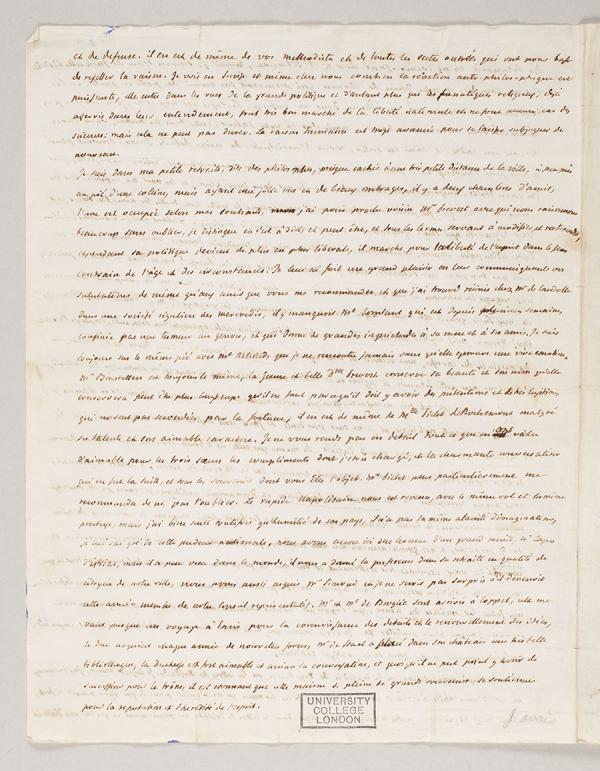 et de defense. il en est de même de vos methodistes et de toutes les sectes outrées qui ont pour base
de rejetter la raison. Je vois en Suisse et même chez nous combien la réaction anti-philosophique est
puissante, elle entre dans les vues de la grande politique et d'autant plus que les fanatiques religieux, déjà
asservis dans leur entendement, font très bon marché de la liberté nationale et ne font aucun cas des
sciences: mais cela ne peut pas durer. La raison humaine est trop avancée pour se laisser subjuguer de
nouveau.
Je suis dans ma petite retraite, dite des philosophes, presque cachée à une très petite distance de la ville,
au pié d'une colline, mais ayant une jolie vue et de beaux ombrages, il y a deux chambres d'amis,
l'une est occupée selon mes souhaits, j'ai pour proche voisin Mr Prevost avec qui nous raisonnons
beaucoup sans oublier je distingue et c'est à dire et peut être, et tous les termes servant à modifier et restreindre,
cependant sa politique devient de plus en plus liberale, il marche pour la liberté de l'esprit dans le sens
contraire de l'age et des circonstances. Je leur ai fait un grand plaisir en leur communiquant vos
salutations, de même qu'aux amis que vous me recommandez et que j'ai trouvé réunis chez Mr de Candolle
dans une société régulière des mercredis, il y manquoit Me Constant qui est depuis plusieurs semaines
confinée par une tumeur au genou, et qui donne de grandes inquietudes à sa mere et à ses amis. Je suis
toujours sur le même pié avec Me que je ne rencontre jamais sans qu'elle eprouve une vive emotion.
Mr Bonstetten est toujours le même, la jeune et belle Dlle Prevost conserve sa beauté et son nom qu'elle
conservera peut être plus longtemps qu'il ne faut parcequ'il doit y avoir des prétentions et très légitimes
qui ne sont pas secondées par la fortune, il en est de même de Mlle Pictet de Rochemont malgré
ses talents et son aimable caractere. Je ne vous rends pas en detail tout ce que m'ont valu
d'aimable pour les trois sœurs les compliments dont j'etois chargé, et la charmante conversation
qui en fut la suite, et tous les souvenirs dont vous etes l'objet. Me Pictet plus particulierement me
recommanda de ne pas l'oublier. Le rapide Napolitain nous est revenu, avec le même vol et la même
prestesse, mais j'ai bien senti toutefois qu'humilié de son pays, il n'a pas la même alacrité d'imagination,
je lui sai gré de cette pudeur nationale, nous avons encore ici un homme d'un grand merite, le Capo
d'Istrias, mais il a peu vécu dans le monde, il nous a donné la preference dans sa retraite en qualité de
citoyen de notre ville, nous avons aussi acquis Mr Simond et je ne serois pas surpris s'il devenoit
cette année membre de notre conseil représentatif. Mr et Me de Broglie sont arrivés à Coppet, cela me
vaut presque un voyage à Paris pour la connoissance des details et le renouvellement des idées,
le duc acquiert chaque année de nouvelles forces, Mr de Stael a placé dans son château une très belle
bibliotheque, la duchesse est fort aimable et anime la conversation, et quoiqu'il ne peut point y avoir de
successeur pour le trône, il est étonnant que cette maison si pleine de grands souvenirs, se soutienne
pour la reputation et l'heredité de l'esprit.
UNIVERSITY
COLLEGE
LONDON
J'avois